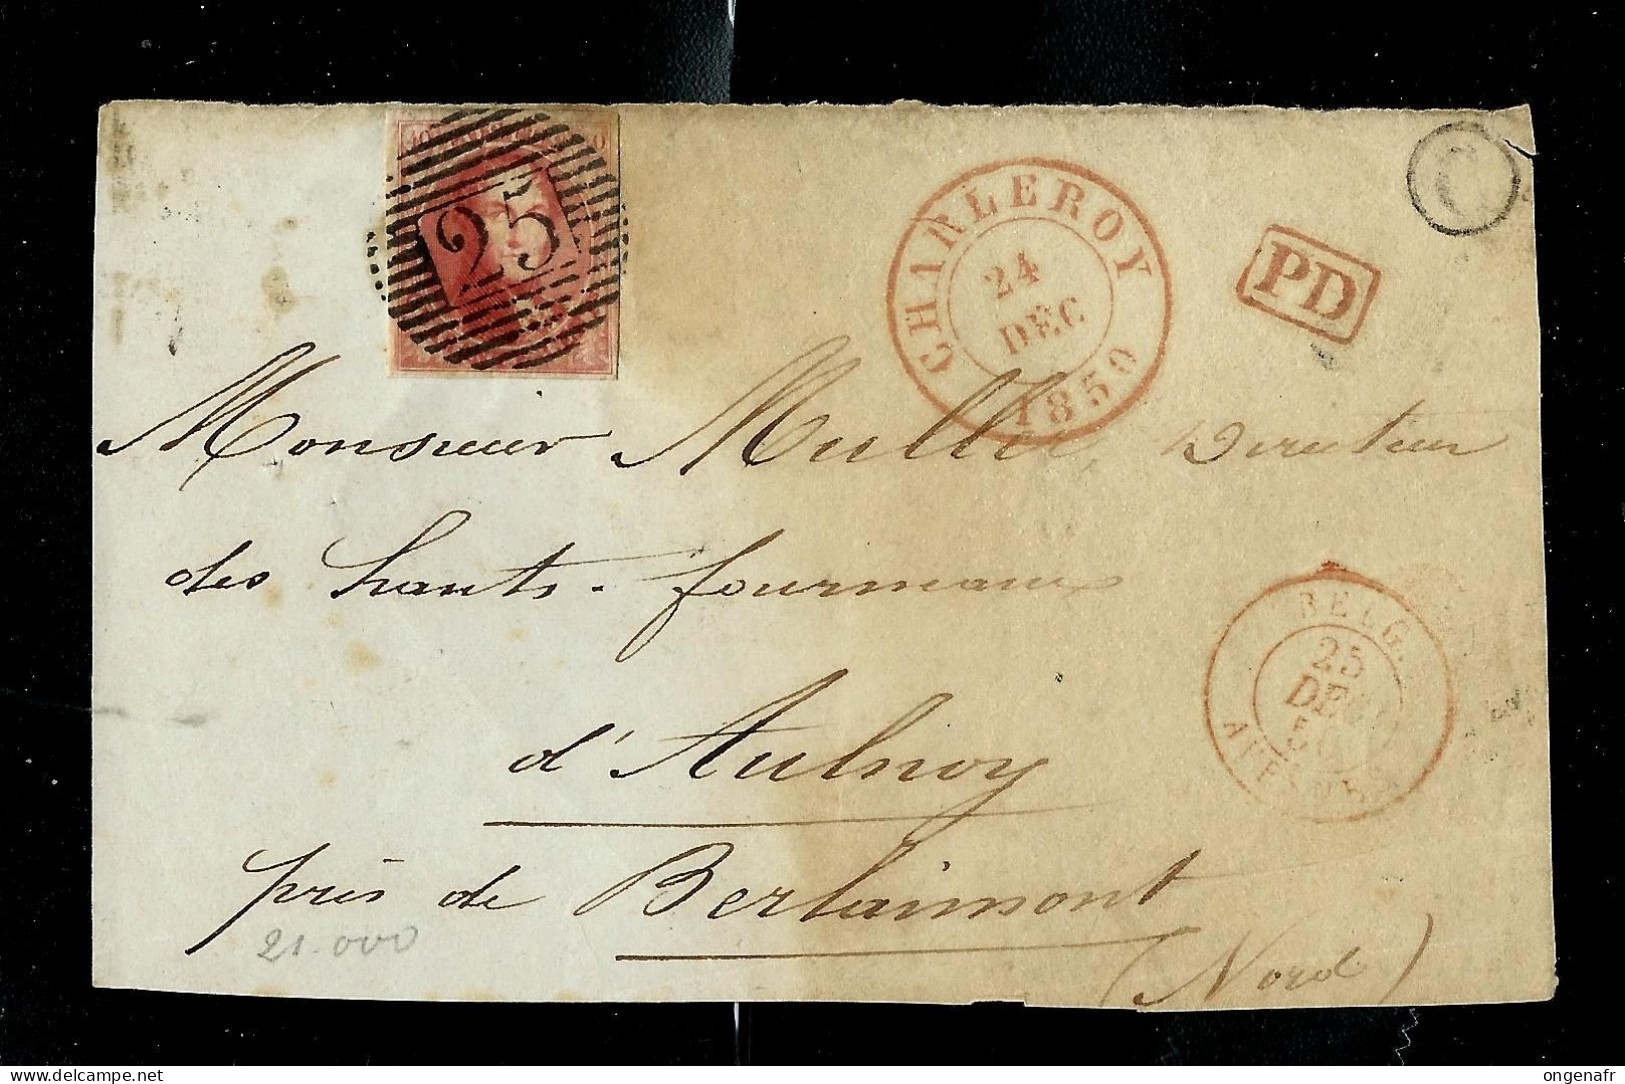 40 40
25
CHARLEROY
24
DEC
1850
PD
C
Monsieur Muller Directeur
des hauts-fourneaux
d'Aulnoy
près de Berlaimont
(Nord)
BELG.
25
DEC
50
AVESNES
21.000
delcampe.net
ongenafr